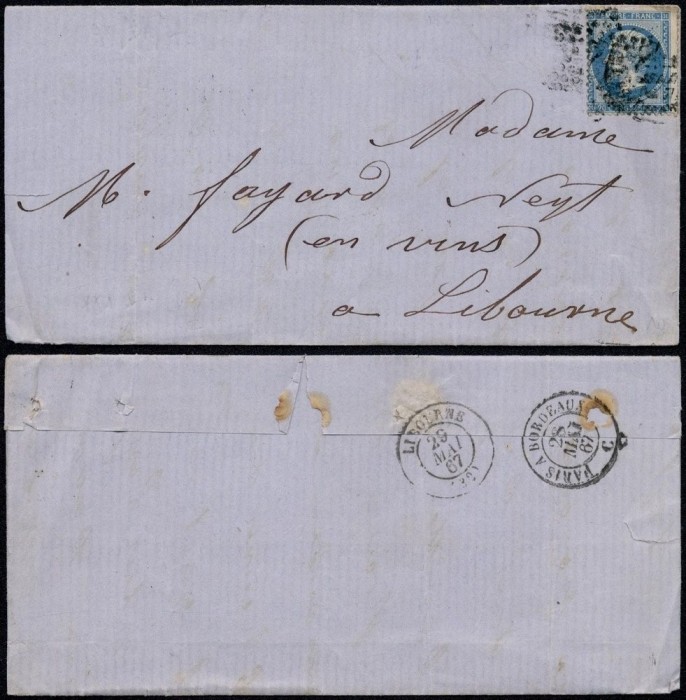 EMPIRE FRANC
Madame
M. Fayard Neyt
(en vins)
a Libourne
LIBOURNE
29
MAI
67
(32)
PARIS A BORDEAUX
MAI
67
C